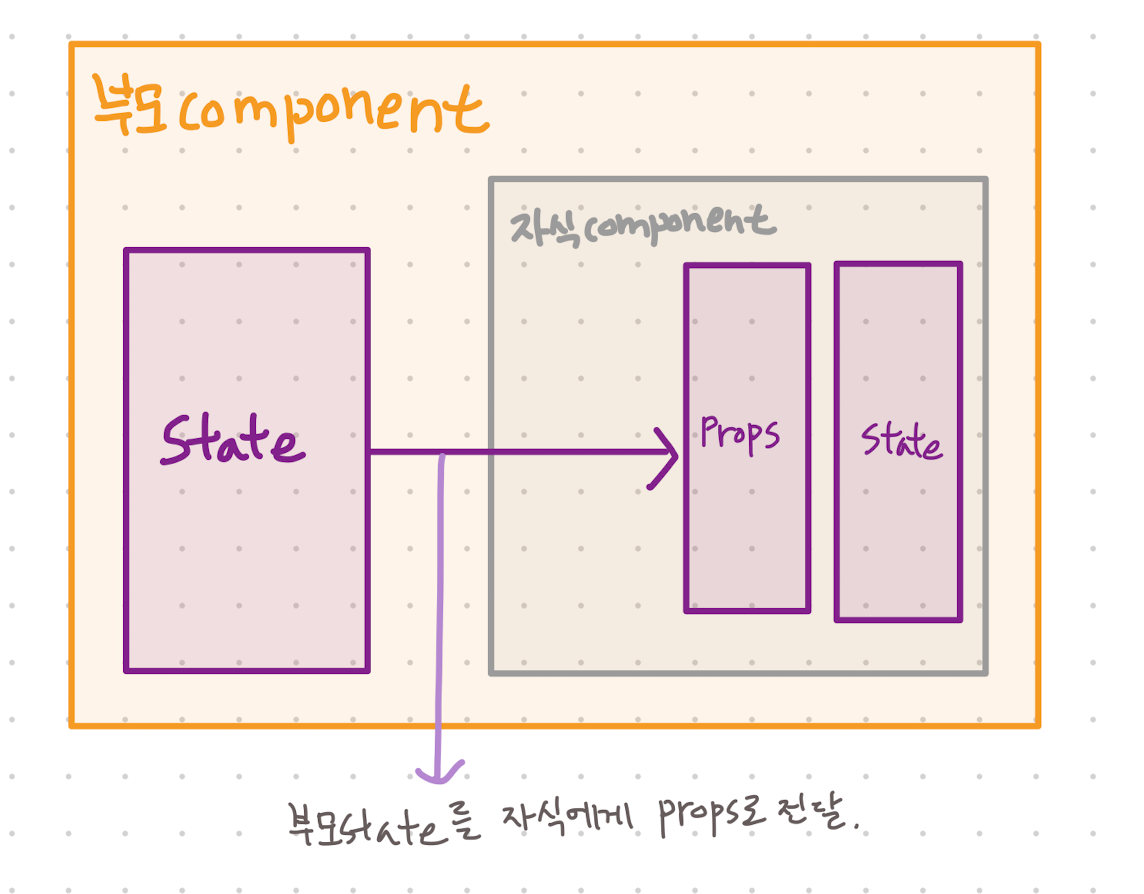 부모 component
자식 component
State
Props
State
부모state를 자식에게 props로 전달.